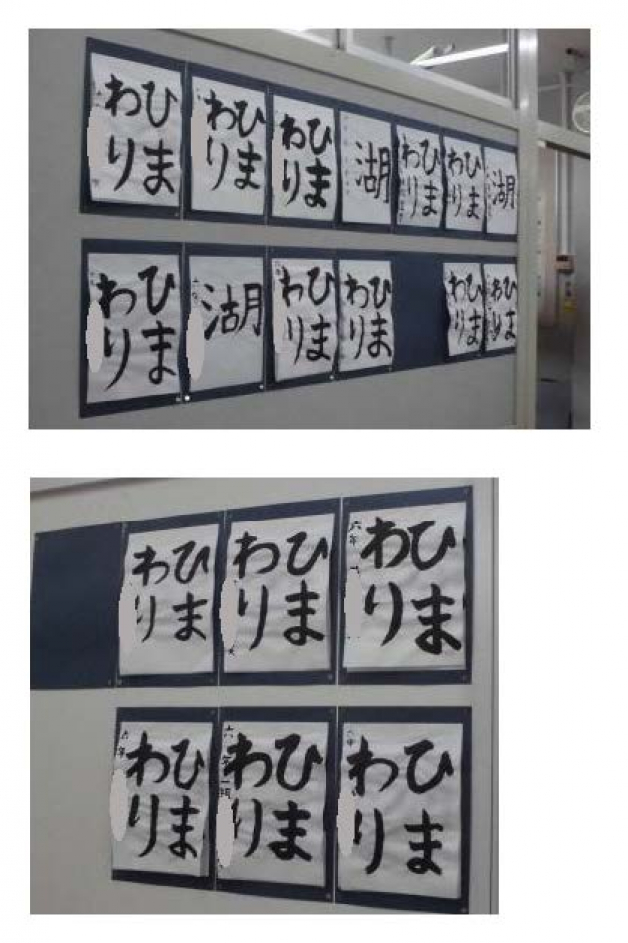 ひま
わり
ひま
わり
ひま
わり
湖
ひま
わり
ひま
わり
湖
ひま
わり
湖
六年
ひま
わり
ひま
わり
ひま
わり
ひま
わり
ひま
わり
ひま
わり
ひま
わり
六年
ひま
わり
六年
ひま
わり
六年
ひま
わり
六年